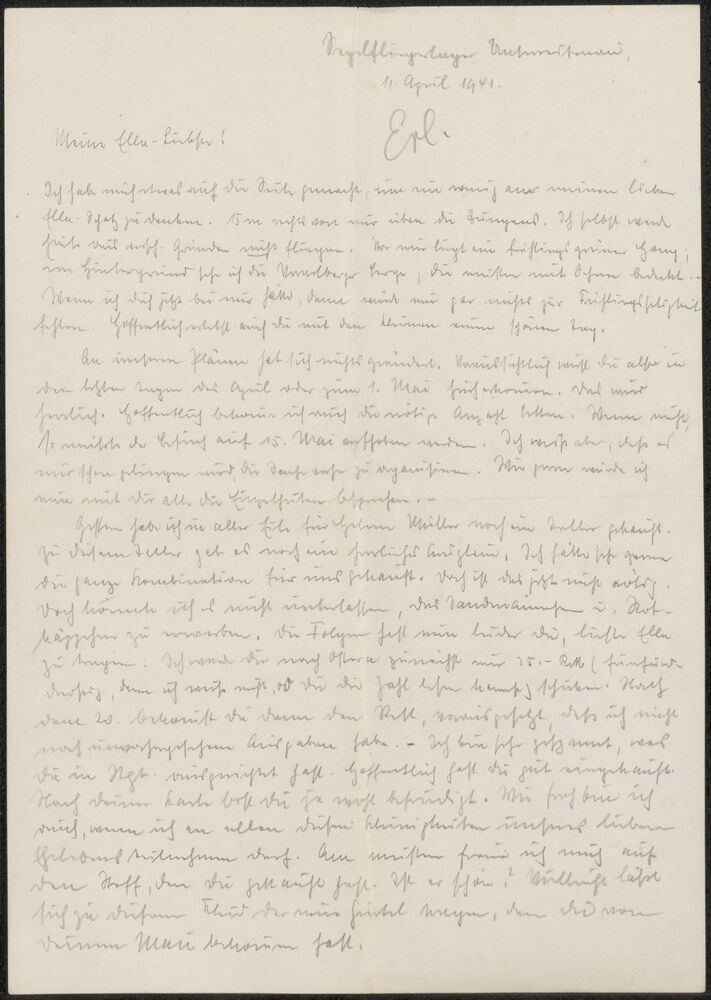 Segelfliegerlager Unterwestenau,
11. April 1941.
Erl.
Meine Ella-Liebste!
Ich habe mich etwas auf die Seite gemacht, um ein wenig an meinen lieben
Ella-Schatz zu denken. 15 m rechts von mir üben die Jungens. Ich selbst werde
heute aus versch. Gründen nicht fliegen. Vor mir liegt ein frühlingsgrüner Hang,
im Hintergrund sehe ich die Vorarlberger Berge, die meisten mit Schnee bedeckt. -
Wenn ich dich jetzt bei mir hätte, dann würde mir gar nichts zur Frühlingsseligkeit
fehlen. Hoffentlich erlebst auch du mit den Kleinen einen schönen Tag.
An unseren Plänen hat sich nichts geändert. Voraussichtlich wirst du also in
den letzten Tagen des April oder zum 1. Mai hierherkommen. Das wird
herrlich. Hoffentlich bekomme ich auch die nötige Anzahl Betten. Wenn nicht,
so müsste der Besuch auf 15. Mai verschoben werden. Ich weiss aber, dass es
mir schon gelingen wird, die Sache zu organisieren. Wie gern würde ich
nun mit dir alle die Einzelheiten besprechen. -
Gestern habe ich in aller Eile für Helene Müller noch ein Teller gekauft.
Zu diesem Teller gab es noch ein herrliches . Ich hätte sehr gerne
die ganze Kombination für uns gekauft. Doch ist das jetzt nicht nötig.
Doch konnte ich es nicht unterlassen, das Sandmännchen u. Rot-
käppchen zu erwerben. Die Folgen hast nun leider du, liebste Ella
zu tragen. Ich werde dir nach Ostern zunächst nur 35.- RM (fünfund-
dreissig, denn ich weiss nicht, ob du die Zahl lesen kannst) schicken. Nach
dem 20. bekommst du dann den Rest, vorausgesetzt, dass ich nicht
noch unvorhergesehene Ausgaben habe. - Ich bin sehr gespannt, was
du in Stgt. ausgerichtet hast. Hoffentlich hast du gut eingekauft.
Nach deiner Karte bist du ja wohl befriedigt. Wie froh bin ich
auch, wenn ich an allen diesen Kleinigkeiten unseres lieben
teilnehmen darf. Am meisten freue ich mich auf
den Stoff, den du gekauft hast. Ist er schön? Vielleicht lässt
sich zu diesem Kleid der neue Gürtel tragen, den du von
deinem Mani bekommen hast.